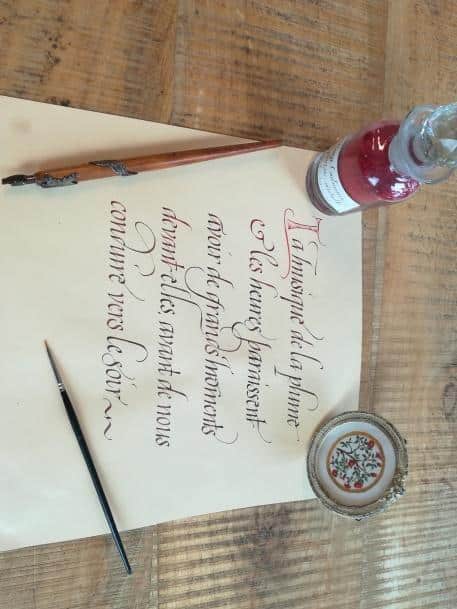 La musique de la plume
& les heures paraissent
avoir de grands moments
devant elles, avant de nous
conduire vers le soir ~~